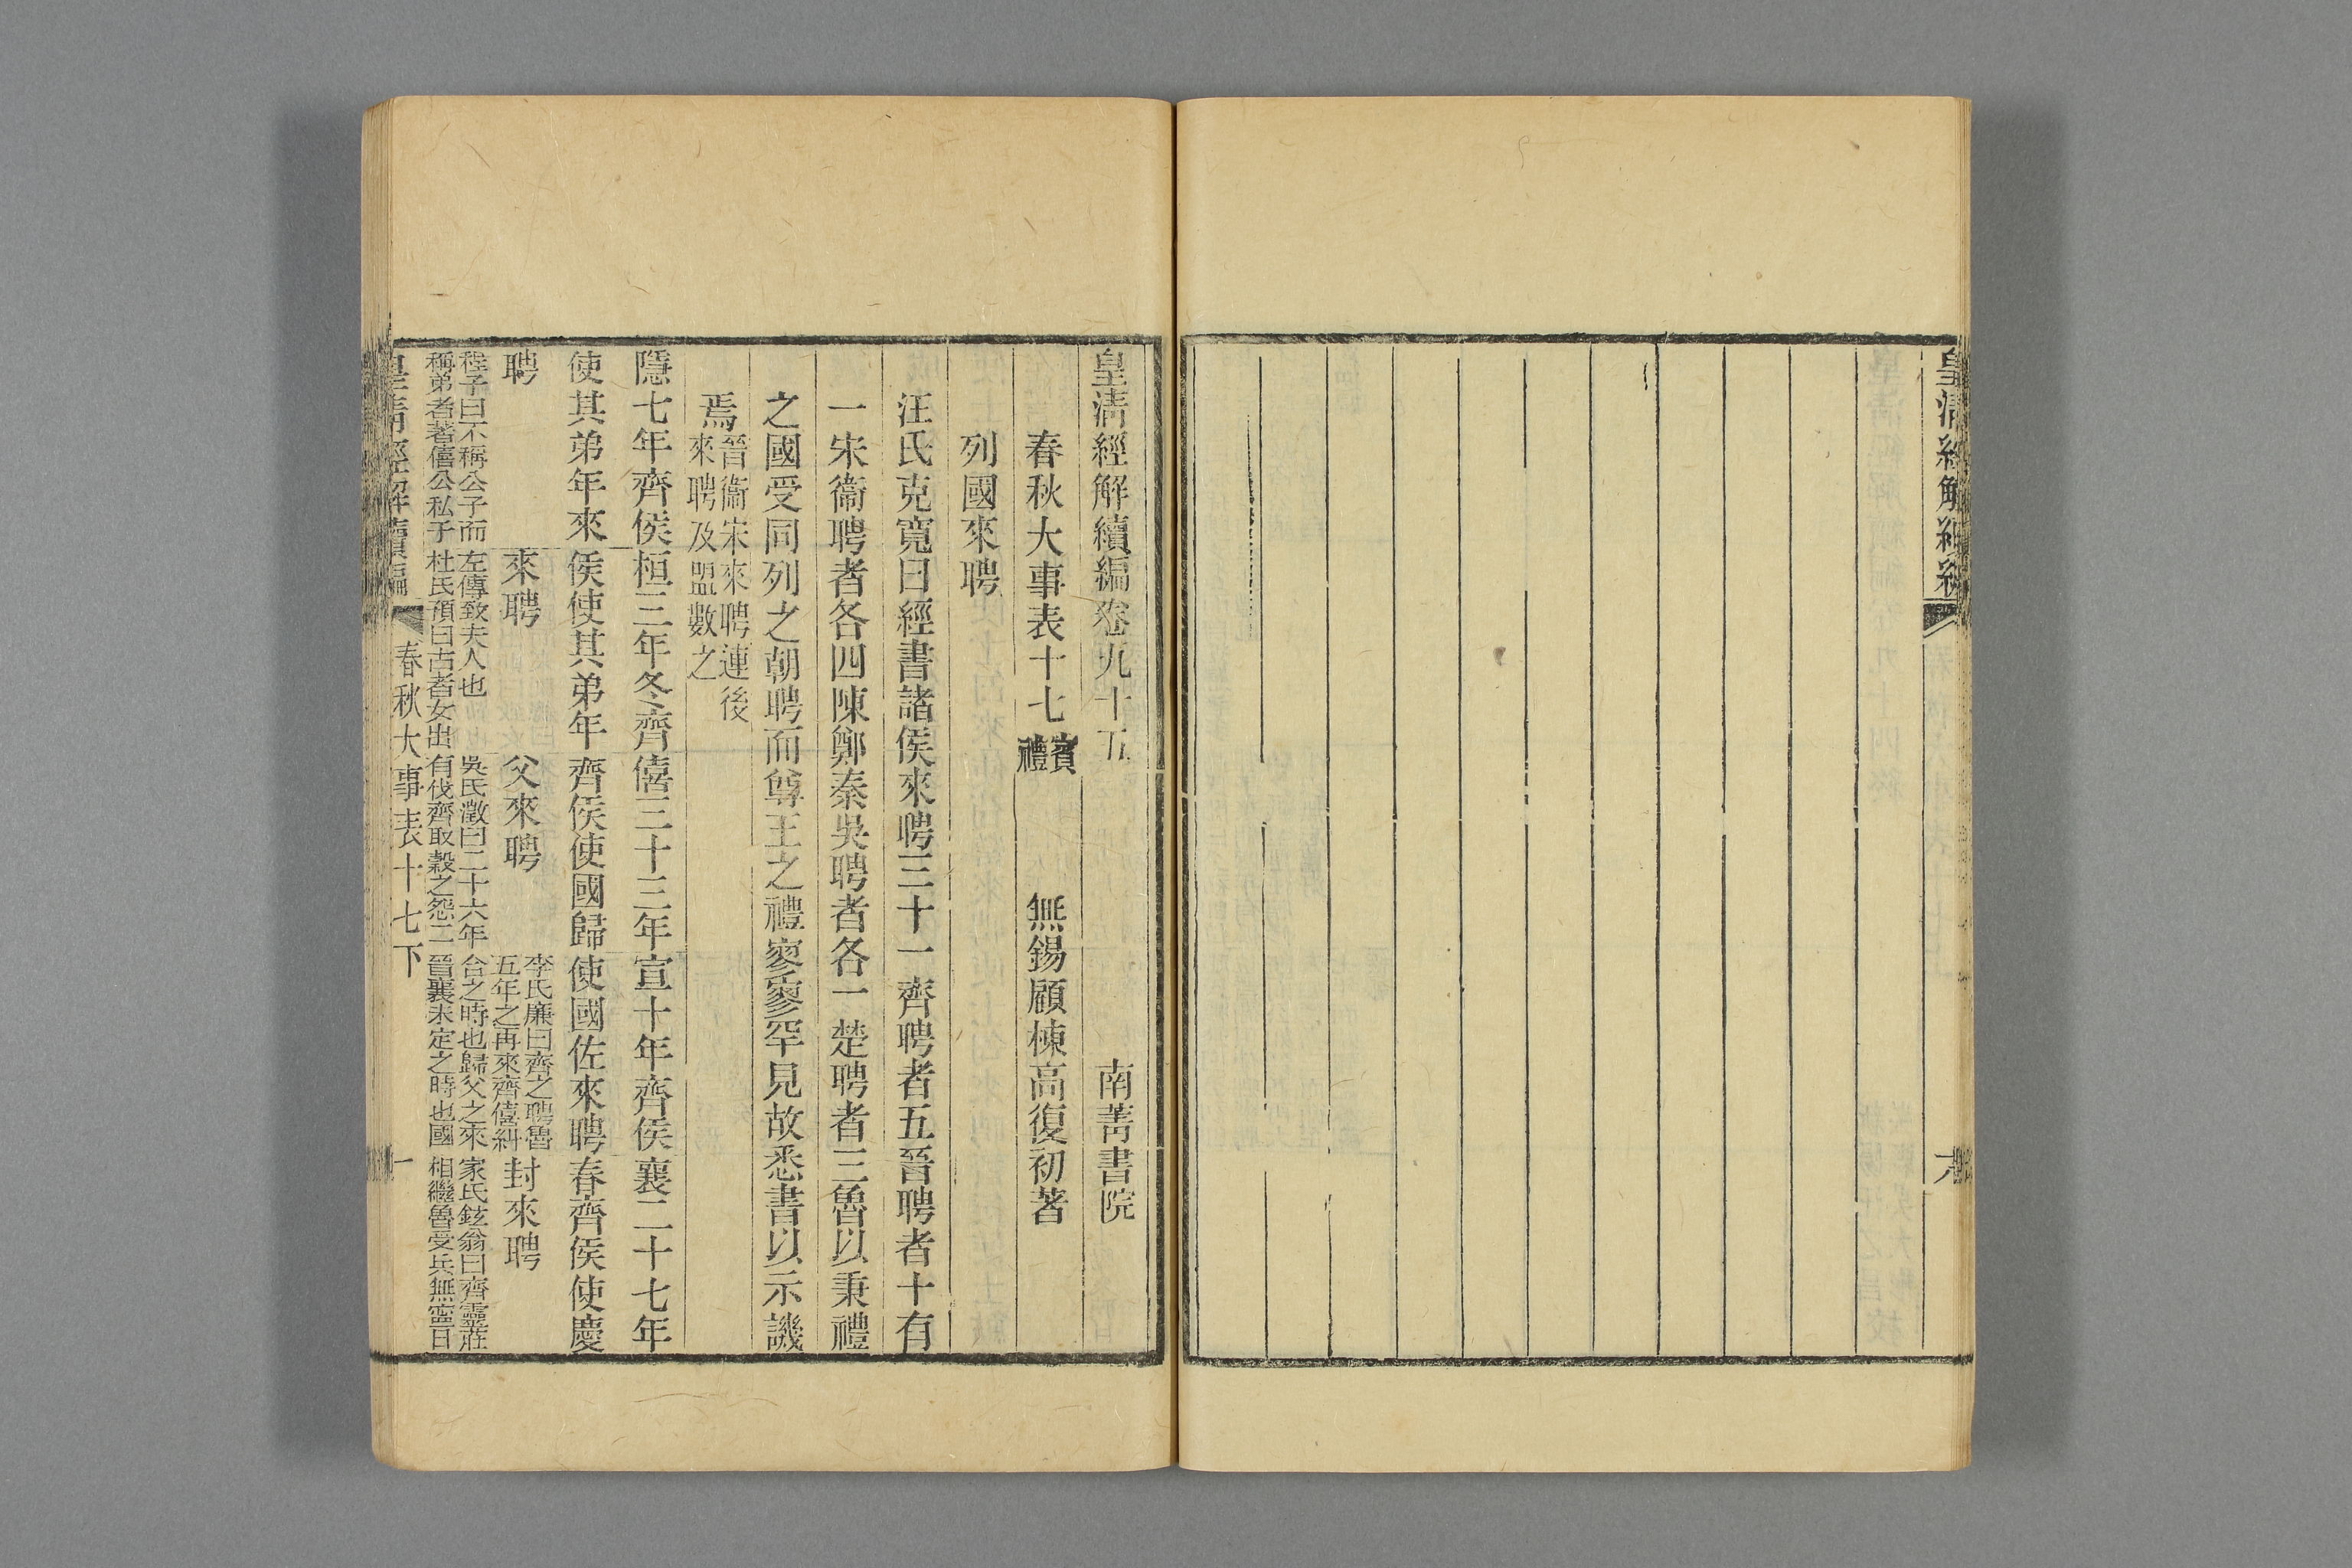 皇清經解續編
六
皇清經解續編卷九十五
南菁書院
春秋大事表十七
賓
禮
無錫顧棟高復初著
列國來聘
汪氏克寬曰經書諸侯來聘三十一齊聘者五晉聘者十有
一宋衞聘者各四陳鄭秦吳聘者各一楚聘者三魯以秉禮
之國受同列之朝聘而尊王之禮寥寥罕見故悉書以示譏
焉
晉衞宋來聘連後
來聘及盟數之
隱七年齊侯
使其弟年來
聘
程子曰不稱公子而
稱弟者著僖公私于
桓三年冬齊
侯使其弟年
來聘
左傳致夫人也
杜氏預曰古者女出
僖三十三年
齊侯使國歸
父來聘
吳氏澂曰二十六年
有伐齊取穀之怨二
宣十年齊侯
使國佐來聘
李氏廉曰齊之聘魯
五年之再來齊僖糾
合之時也歸父之來
晉襄未定之時也國
襄二十七年
春齊侯使慶
封來聘
家氏鉉翁曰齊靈莊
相繼魯受兵無寧日
皇清經解續編
春秋大事表十七下
一